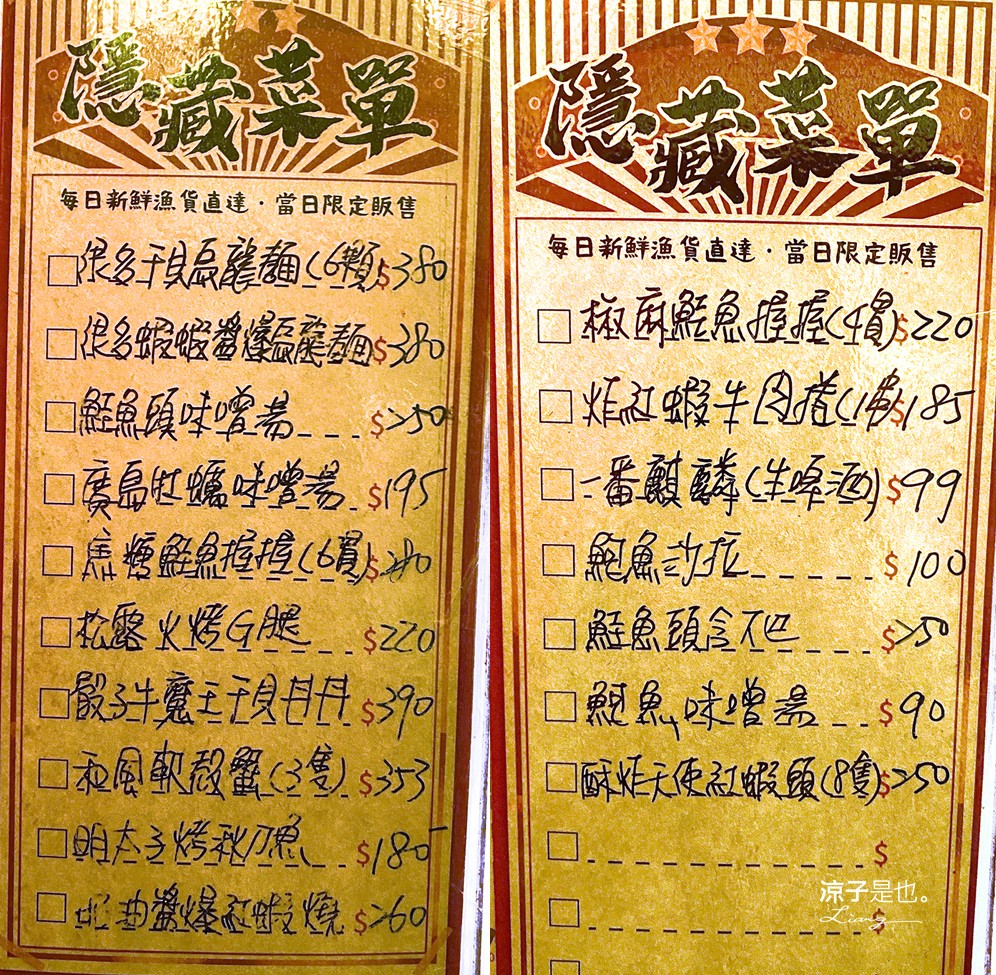 隱藏菜單
每日新鮮漁貨直達·當日限定販售
很多干貝烏龍麵(6顆)$380
很多蝦蝦醬爆烏龍麵$380
鮭魚頭味噌湯$250
廣島牡蠣味噌湯$195
焦糖鮭魚握握(6貫)$280
松露火烤G腿$220
骰子牛魔王干貝丼丼$390
和風軟殼蟹(3隻)$353
明太子烤秋刀魚$180
醬爆紅蝦燒$260
隱藏菜單
每日新鮮漁貨直達·當日限定販售
椒麻鮭魚握握(4貫)$220
炸紅蝦牛肉捲(1串)$185
一番麒麟(生啤酒)$99
鮑魚沙拉$100
鮭魚頭含下巴$250
鮑魚味噌湯$90
酥炸天使紅蝦頭(8隻)$250
$
$
涼子是也。
Liang